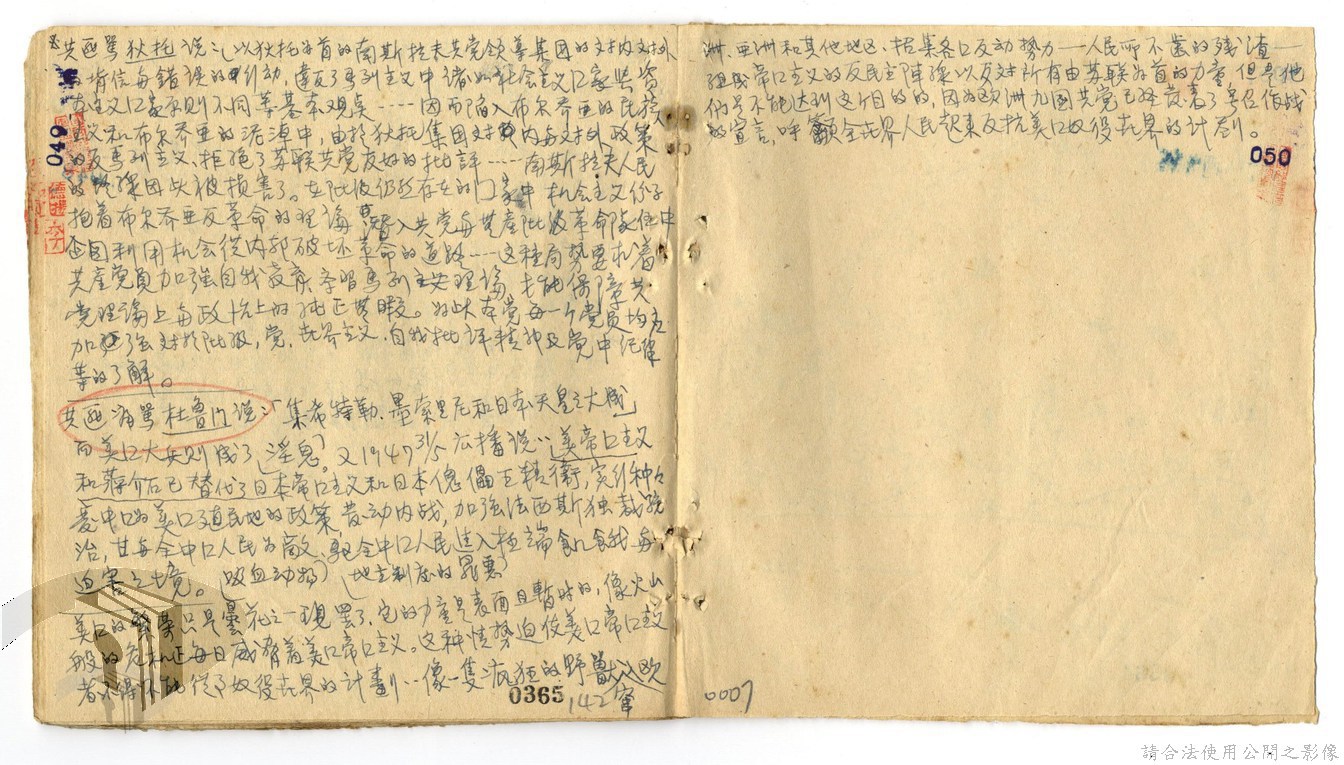 共匪罵狄托说:以狄托为首的南斯拉夫共党领导集团的对内对外
背信与错误的引动,違反了馬列主义中诸如社会主义囗家与资
本主义囗家原则不同等基本观点……因而陷入布尔乔亚的民族
主义和布尔乔亚的泥淖中,由於狄托集团对内与对外政策
的反馬列主义,拒绝了苏联共党友好的批評……南斯拉夫人民
的 因此被损害了。在阶级仍然存在的囗家中,机会主义份子
抱着布尔乔亚反革命的理論,潛入共党与共產阶级革命队伍中
企图利用机会從内部破坏革命的道路……这種局势要求着
共產党員加强自我教育,学習馬列主义理論,才能保障共
党理論上与政治上的纯正無暇。为此本党每一个党员均应
加强对於阶级,党,世界主义,自我批评精神及党中纪律
等的了解。
共匪 罵杜鲁门说:「集希特勒、墨索里尼和日本天皇之大成」
而美囗大兵则成了「淫鬼」。又1947 31/5 広播说:「美帝囗主义
和蒋介石已替代了日本帝囗主义和日本傀儡 ,实引种々
变中囗为美囗殖民地的政策,发动内战,加强法西斯独裁统
治,甘与全中囗人民为敵,驱全中囗人民進入極端飢餓与
迫害之境。(吸血动物)(地主制度的罪惡)
美囗的繁荣只是曇花之一现罢了,它的力量是表面且暫时的,像火山
般的危机正每日威脅着美囗帝囗主义。这种情势迫使美囗帝囗主义
者不得不 奴役世界的计劃…像一隻疯狂的野獸入欧
洲、亚洲和其他地区,搜集各囗反动势力——人民所不齒的残渣——
组成帝囗主义的反民主陣線以反对所有由苏联为首的力量,但是他
们是不能达到这个目的的,因为欧洲九國共党已经发表了号召作战
的宣言,呼籲全世界人民起来反抗美囗奴役世界的计划。
049
050
0365
142
0007
請合法使用公開之影像